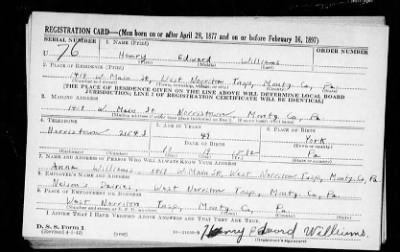 REGISTRATION CARD—(Men born on or after April 28, 1877 and on or before February 16, 1897)
SERIAL NUMBER 1. NAME (Print) ORDER NUMBER
U 76 Henry Edward Williams
(First) (Middle) (Last)
2. PLACE OF RESIDENCE (Print)
1418 W. Main St, West Norriton Twp, Montg. Co, Pa
[THE PLACE OF RESIDENCE GIVEN ON THE LINE ABOVE WILL DETERMINE LOCAL BOARD
JURISDICTION; LINE 2 OF REGISTRATION CERTIFICATE WILL BE IDENTICAL]
3. MAILING ADDRESS
1418 W. Main St. Norristown, Montg. Co, Pa.
4. TELEPHONE 5. AGE IN YEARS 6. PLACE OF BIRTH
Norristown 47 York
DATE OF BIRTH
Pa
7. NAME AND ADDRESS OF PERSON WHO WILL ALWAYS KNOW YOUR ADDRESS
Anna Williams 1418 W. Main St, West Norriton Twp, Montg. Co, Pa
8. EMPLOYER'S NAME AND ADDRESS
Nelson's Dairies, West Norriton Twp, Montg. Co, Pa
9. PLACE OF EMPLOYMENT OR BUSINESS
West Norriton Twp, Montg. Co, Pa
I AFFIRM THAT I HAVE VERIFIED ABOVE ANSWERS AND THAT THEY ARE TRUE.
D. S. S. Form 1
(Revised 4-1-42) (over) Henry Edward Williams.
(Registrant's signature)